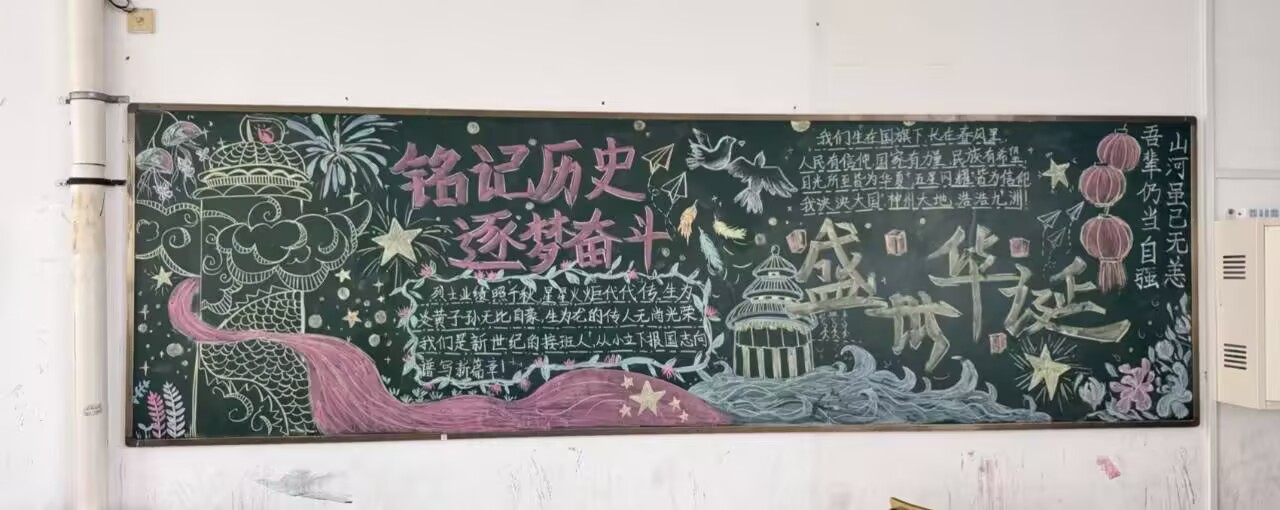 铭记历史
逐梦奋斗
烈士业绩照千秋,星星火炬代代传,生为
炎黄子孙无比自豪,生为龙的传人无尚光荣
我们是新世纪的接班人,从小立下报国志向
谱写新篇章!
我们生在国旗下,长在春风里,
人民有信仰,国家有力量,民族有希望
目光所至皆为华夏,五星闪耀皆为信仰
我泱泱大国,神州大地,浩浩九洲!
盛世华诞
山河虽已无恙
吾辈仍当自强